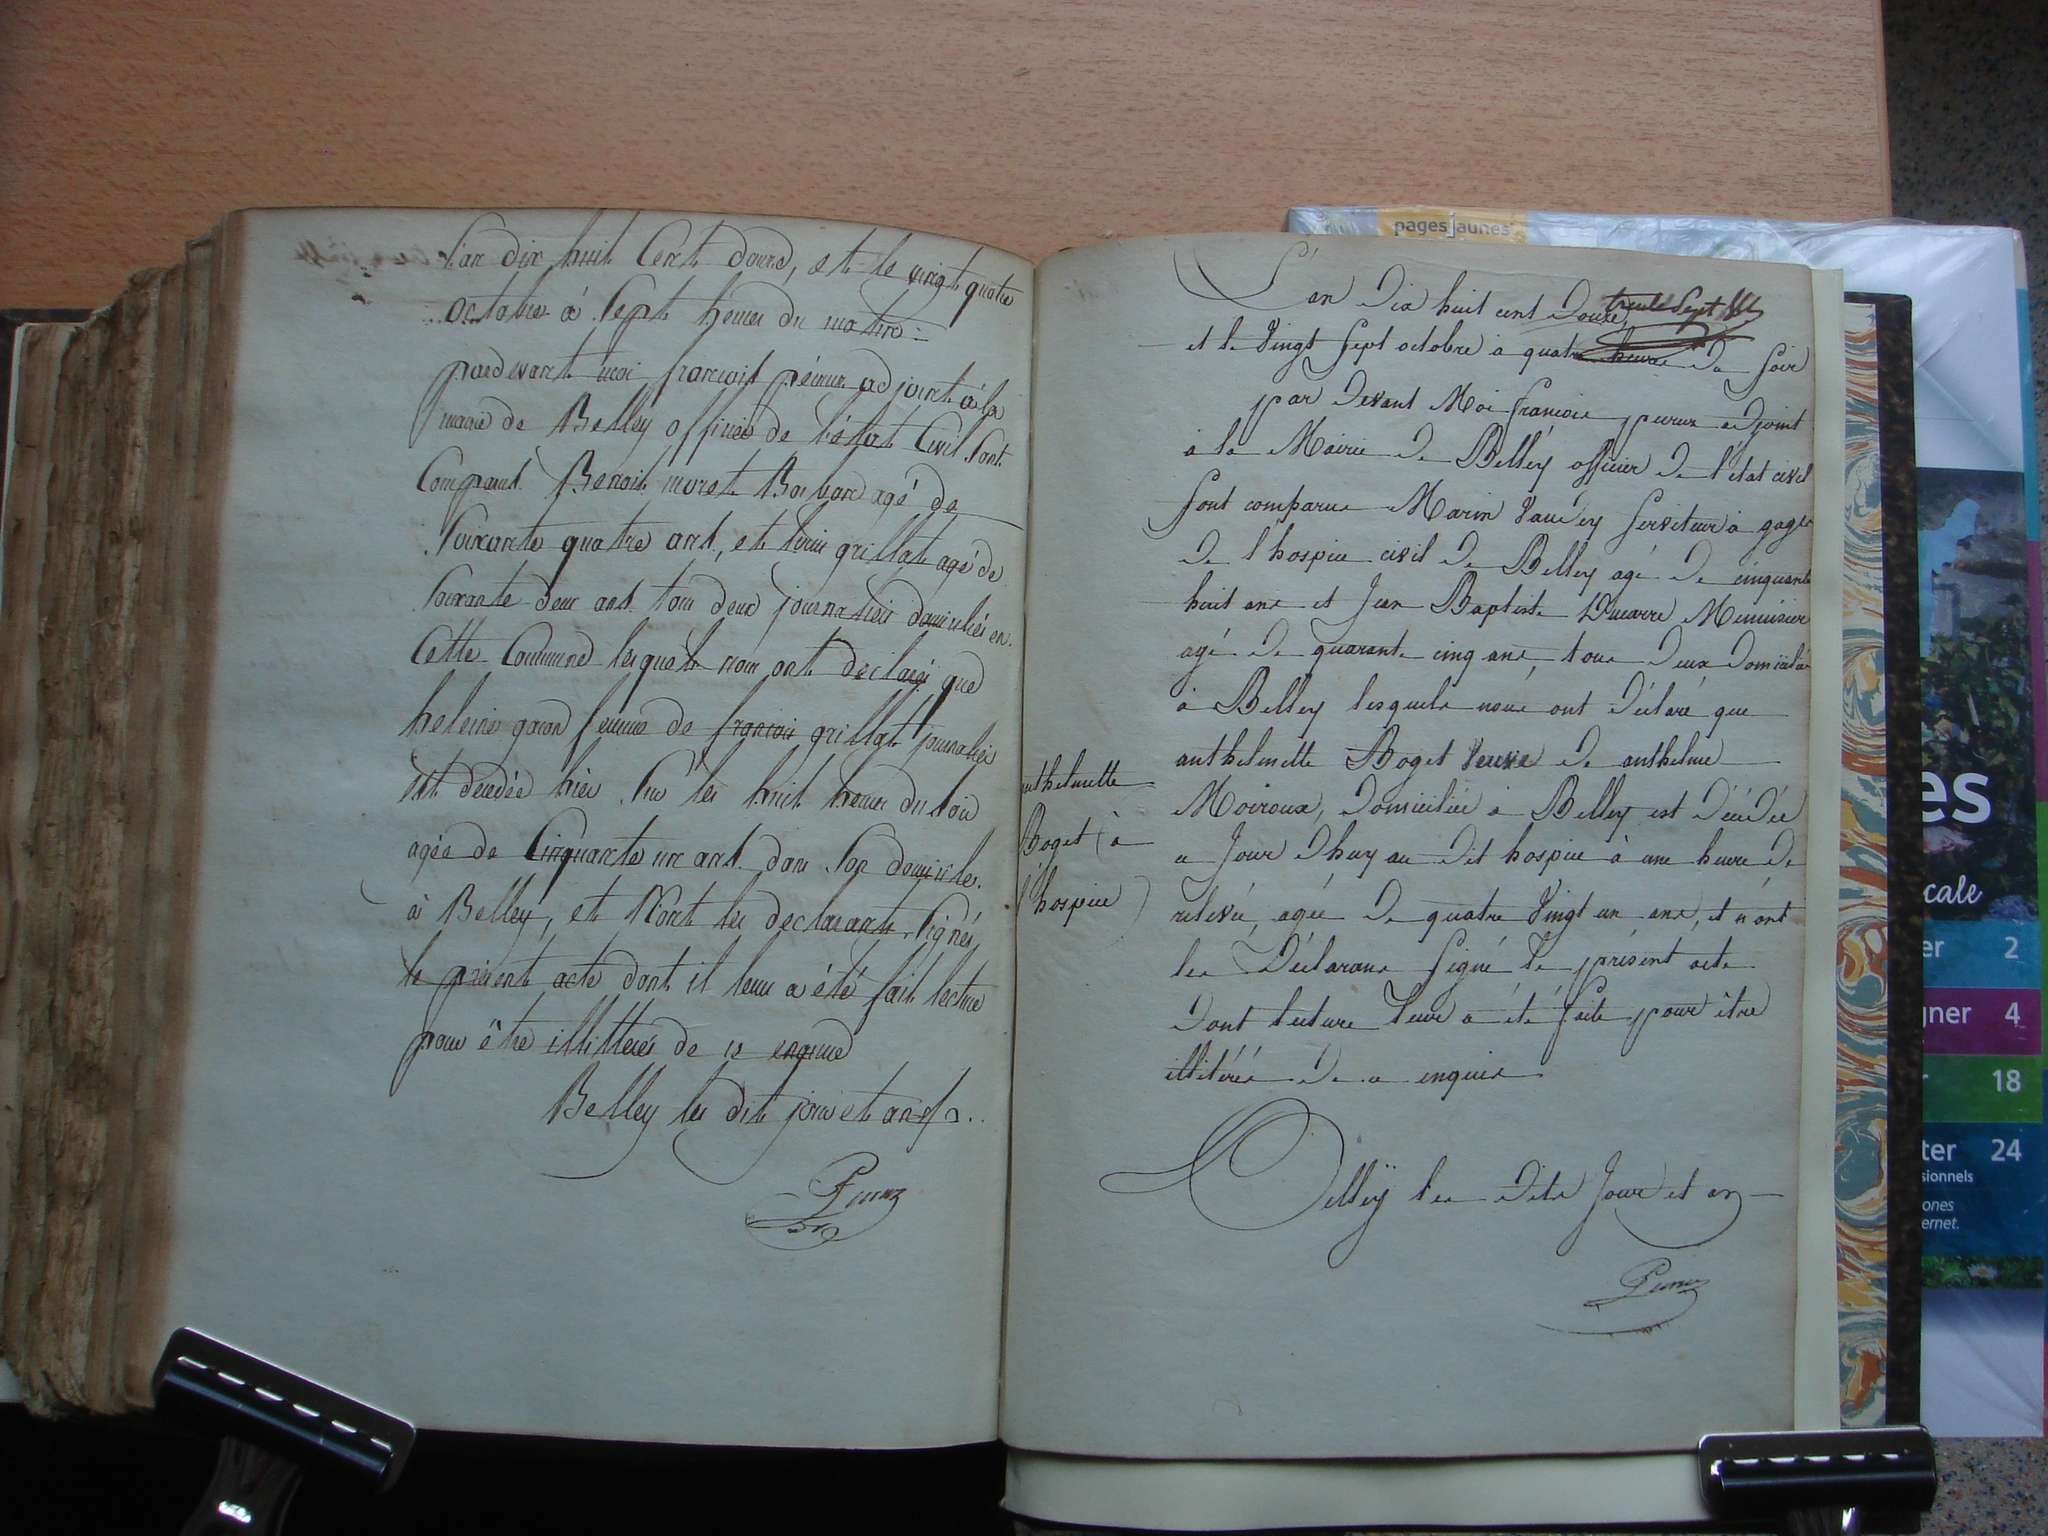 l'an dix huit Cent douze, et le vingt quatre
octobre à Sept heures du matin
pardevant moi françois peroux adjoint à la
mairie de Belley officier de l'état Civil Sont
Comparus Benoit moret agé de
Soixante quatre ans, et grillat agé de
Soixante deux ans tous deux journaliers domiciliés en
Cette Commune lesquels nous ont déclaré que
heleine femme de françois grillat journalier
est décédée hier Sur les huit heures du soir
agée de Cinquante un ans dans Son domicile
à Belley, et N'ont les déclarants Signés
le présent acte dont il leur a été fait lecture
pour être illitterés de ce enquis
Belley les dit jour et an
L'an Dix huit cent Douze
trente Sept
et le Vingt Sept octobre à quatre heures du Soir
par Devant Moi françois adjoint
à la Mairie de Belley officier de l'état civil
Sont comparus Marin Vaudey Serviteur à gages
de l'hospice civil de Belley agé de cinquante
huit ans et Jean Baptiste Ducarre Menuisier
agé de quarante cinq ans, tous deux domiciliés
à Belley lesquels nous ont déclaré que
anthelmette Boget Veuve de anthelme
Moiroux, domiciliée à Belley est décédée
ce Jour D'huy au dit hospice à une heure de
relevée, agée de quatre Vingt un ans, et n'ont
les Déclarans Signé le présent acte
Dont lecture leur a été faite pour être
illitérés de ce enquis
Belley les dits Jour et an
anthelmette
Boget (à
l'hospice)
pages jaunes
es
cale
er 2
gner 4
r 18
ter 24
sionnels
ones
ernet.